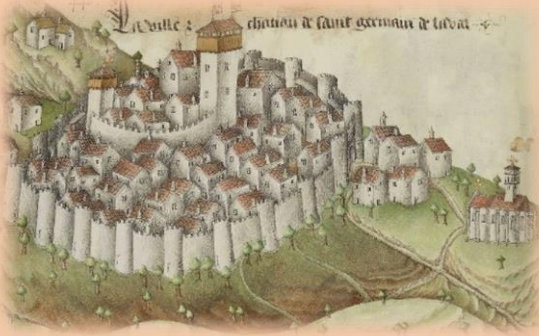 La ville & chatiau de saint germain de laval